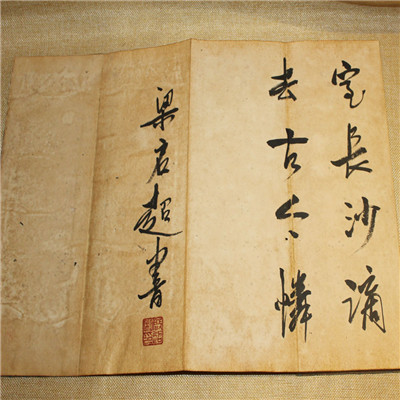 室長沙謫
去古今憐
梁启超書